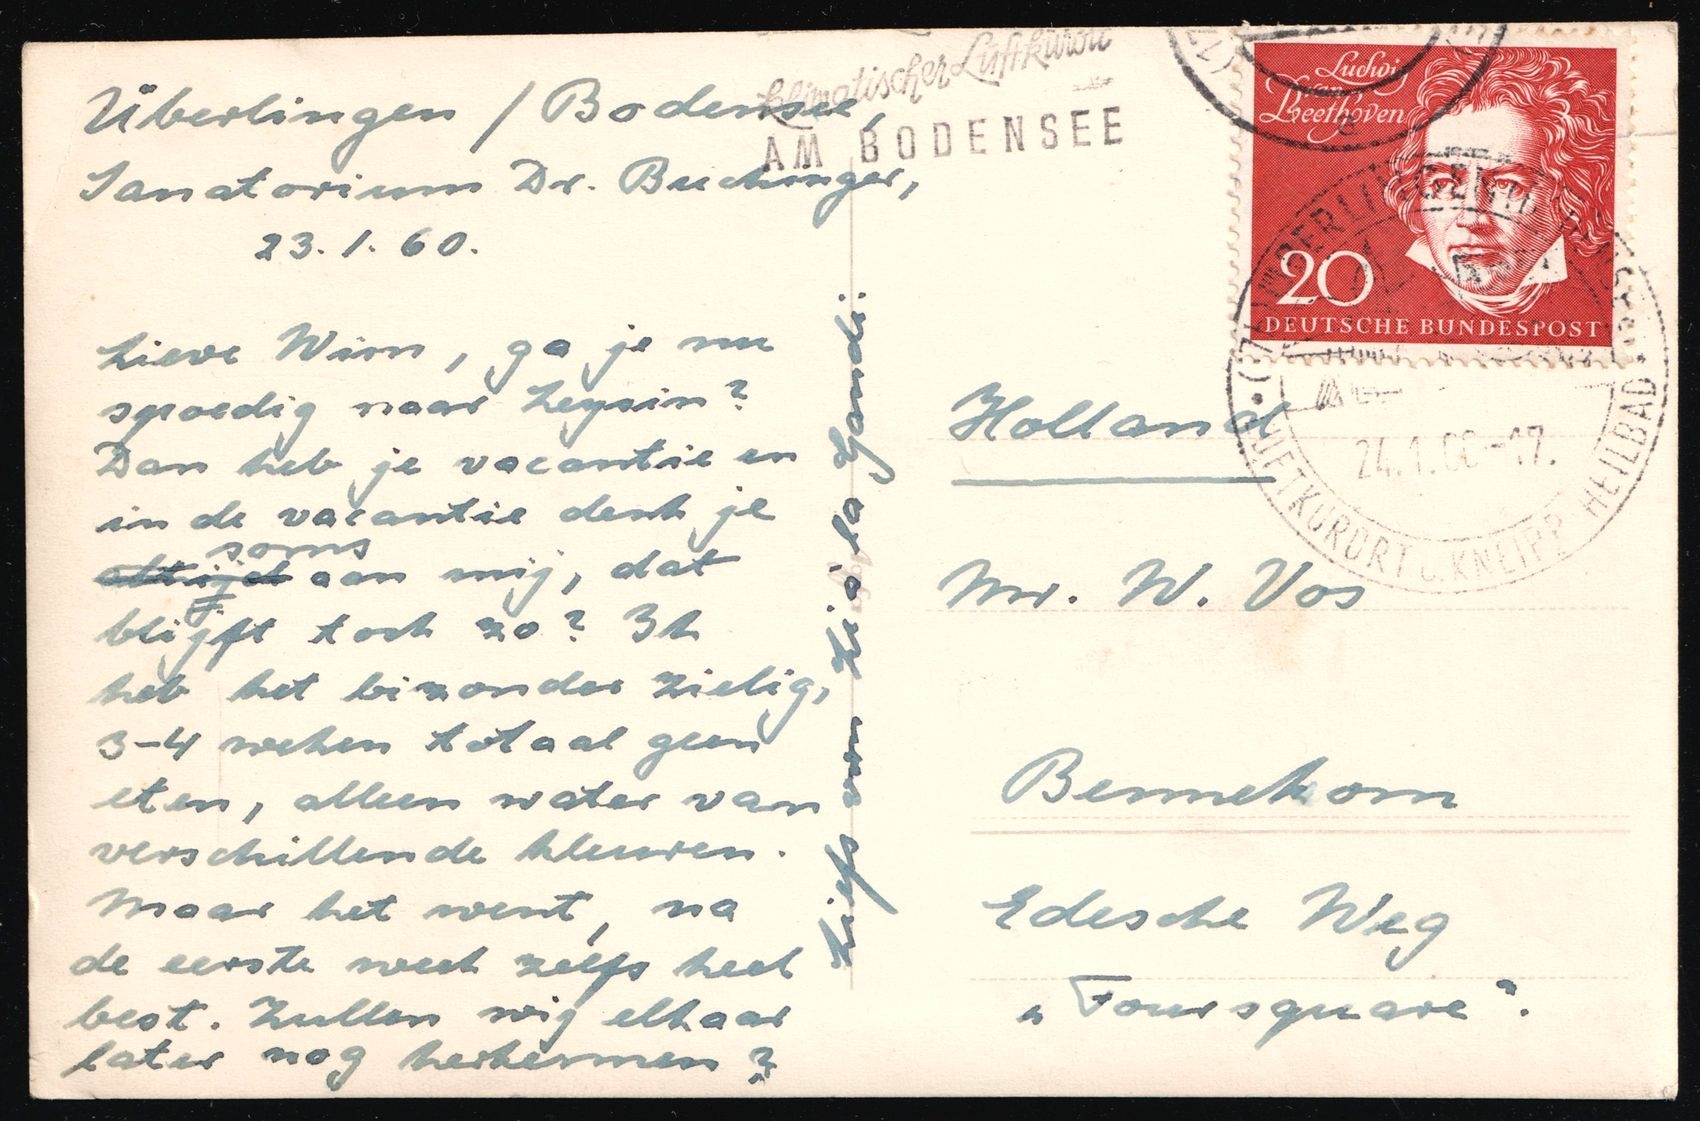 Überlingen / Bodensee,
Sanatorium Dr. Buchinger,
23.1.60.
Lieve Wim, ga je nu
spoedig naar Leysin?
Dan heb je vacantie en
in de vacantie denk je
soms
altijd aan mij, dat
blijft toch zo? Ik
heb het bizonder zielig,
3-4 weken totaal geen
eten, alleen water van
verschillende kleuren.
Maar het went, na
de eerste week zelfs heel
best. Zullen wij elkaar
later nog herkennen?
Liefs von Lia à la Gandi:
Klimatischer Luftkurort
AM BODENSEE
Ludwig
Beethoven
20
DEUTSCHE BUNDESPOST
ÜBERLINGEN
24.1.60-17.
LUFTKURORT u. KNEIPP-HEILBAD
Holland
Mr. W. Vos
Bennekom
Edesche Weg
„Foursquare".